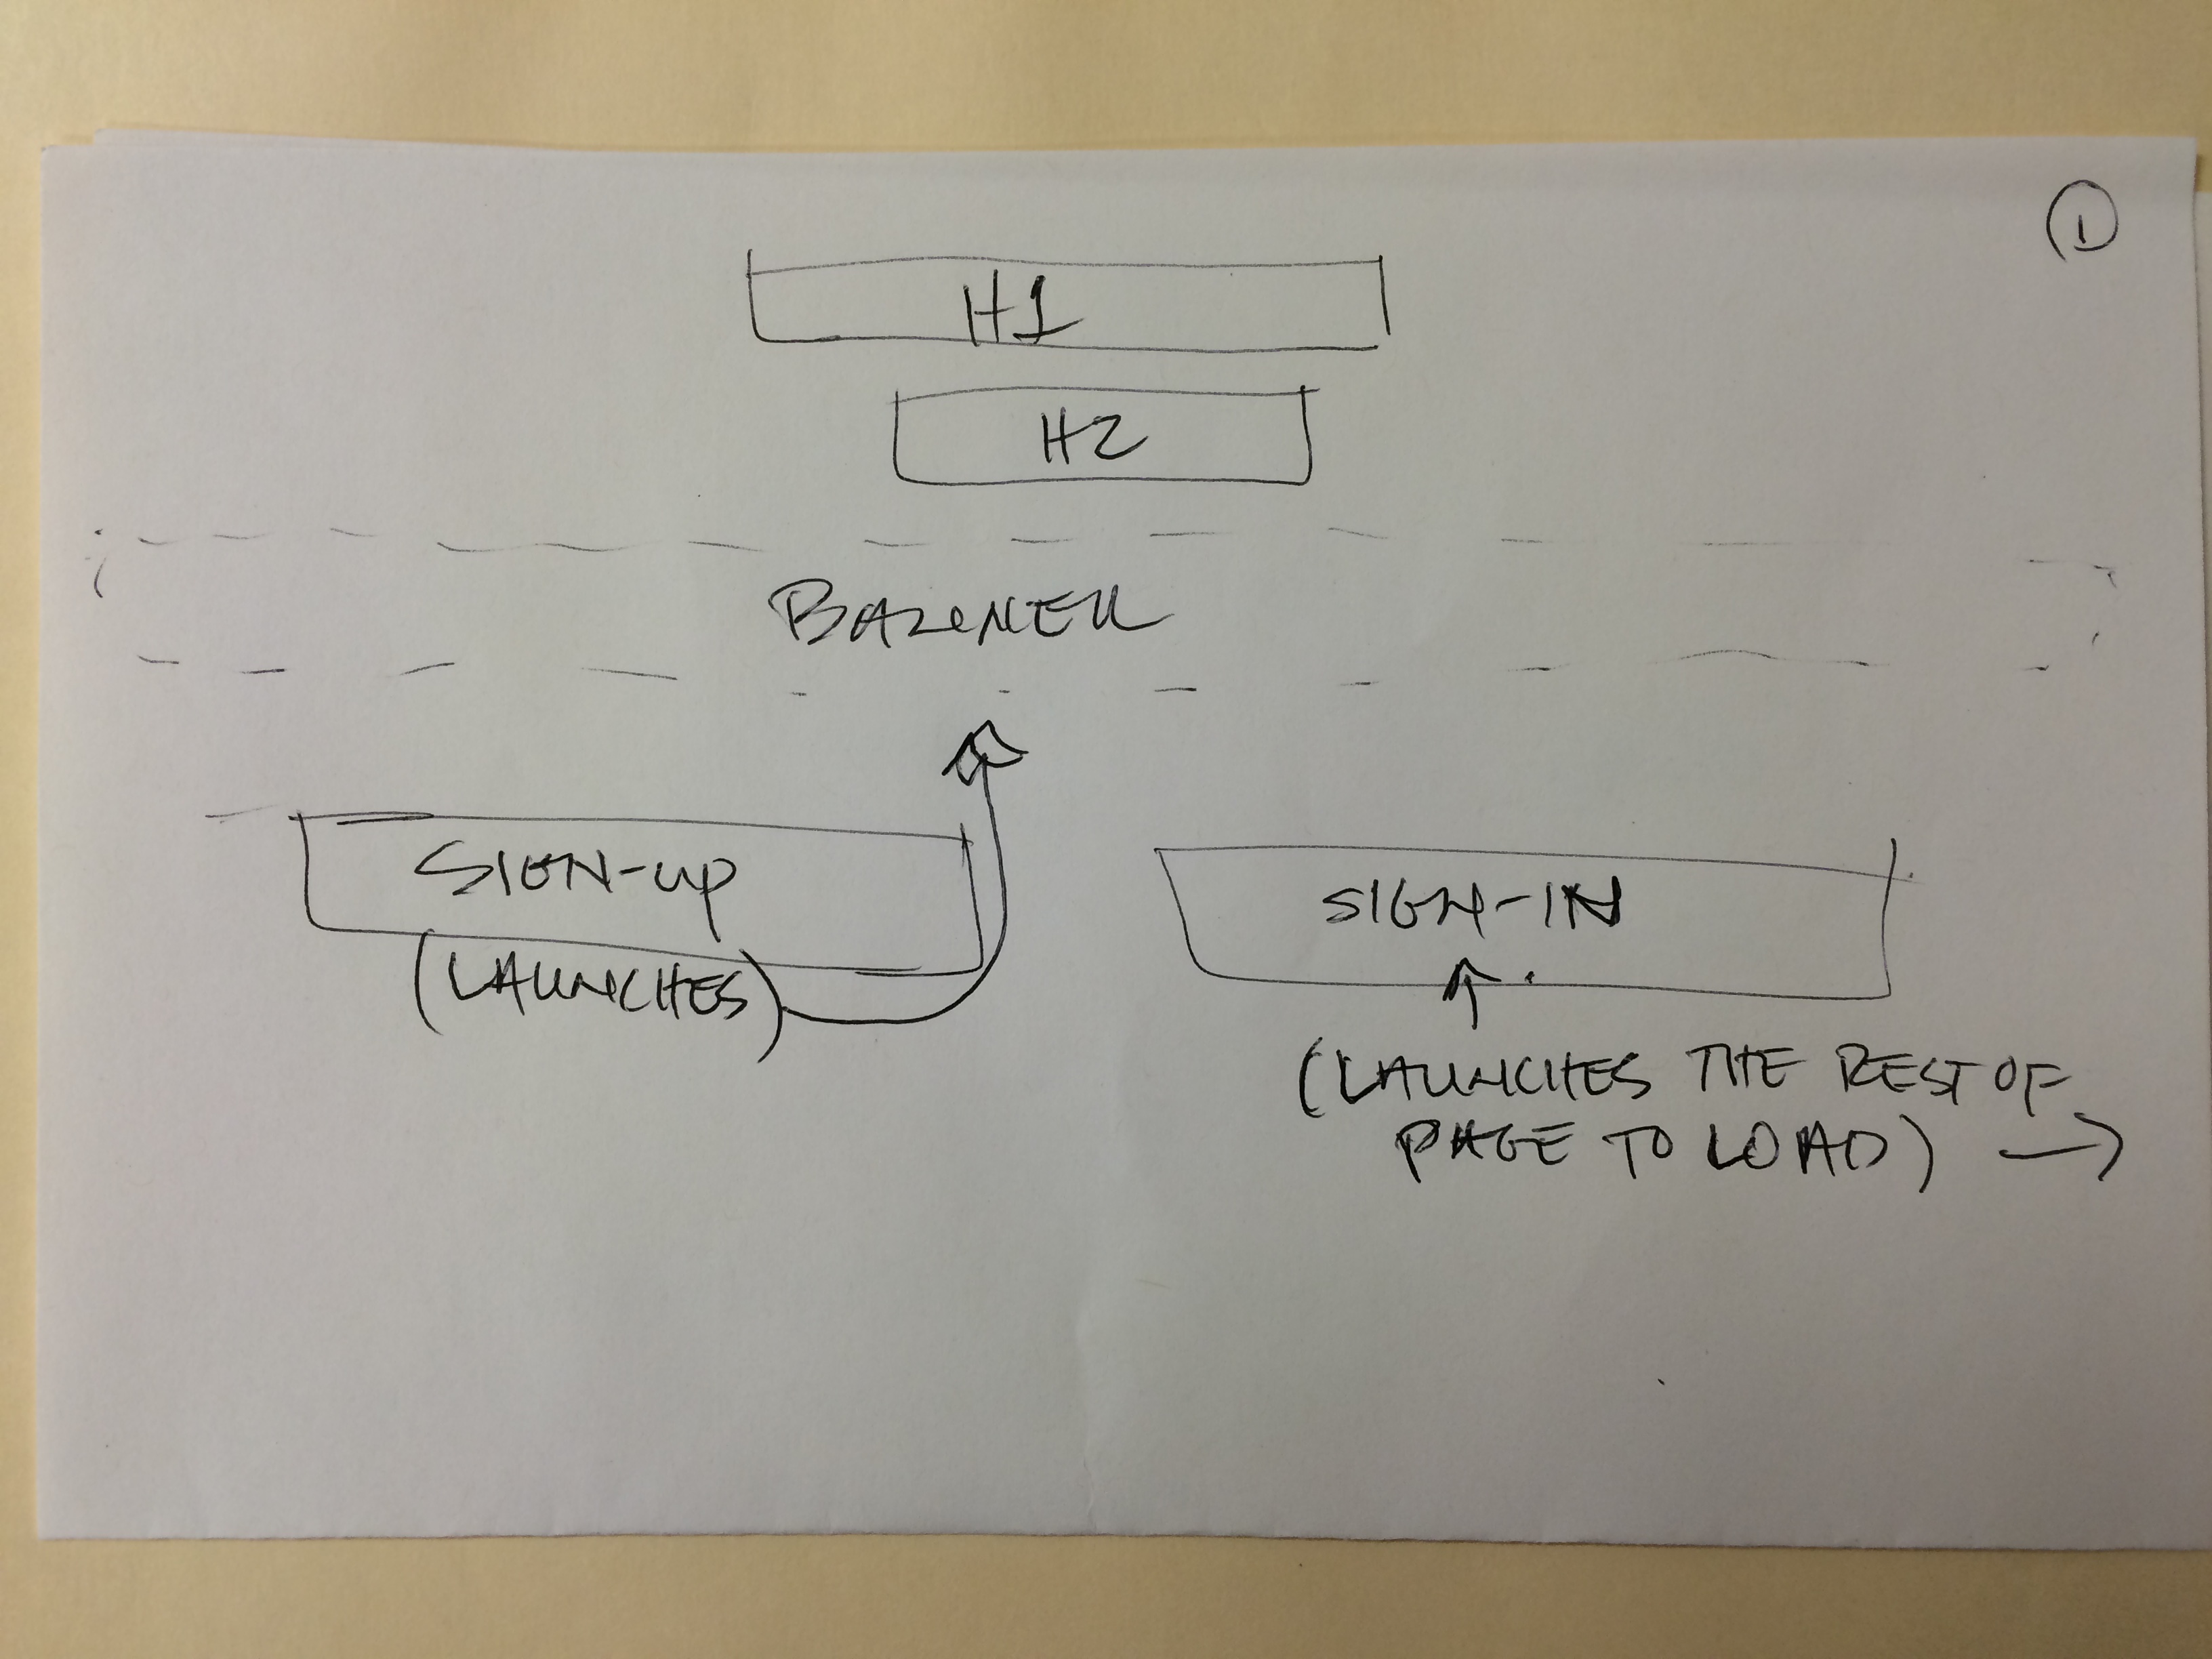 1
H1
H2
BANNER
SIGN-UP
(LAUNCHES)
SIGN-IN
(LAUNCHES THE REST OF
PAGE TO LOAD) →